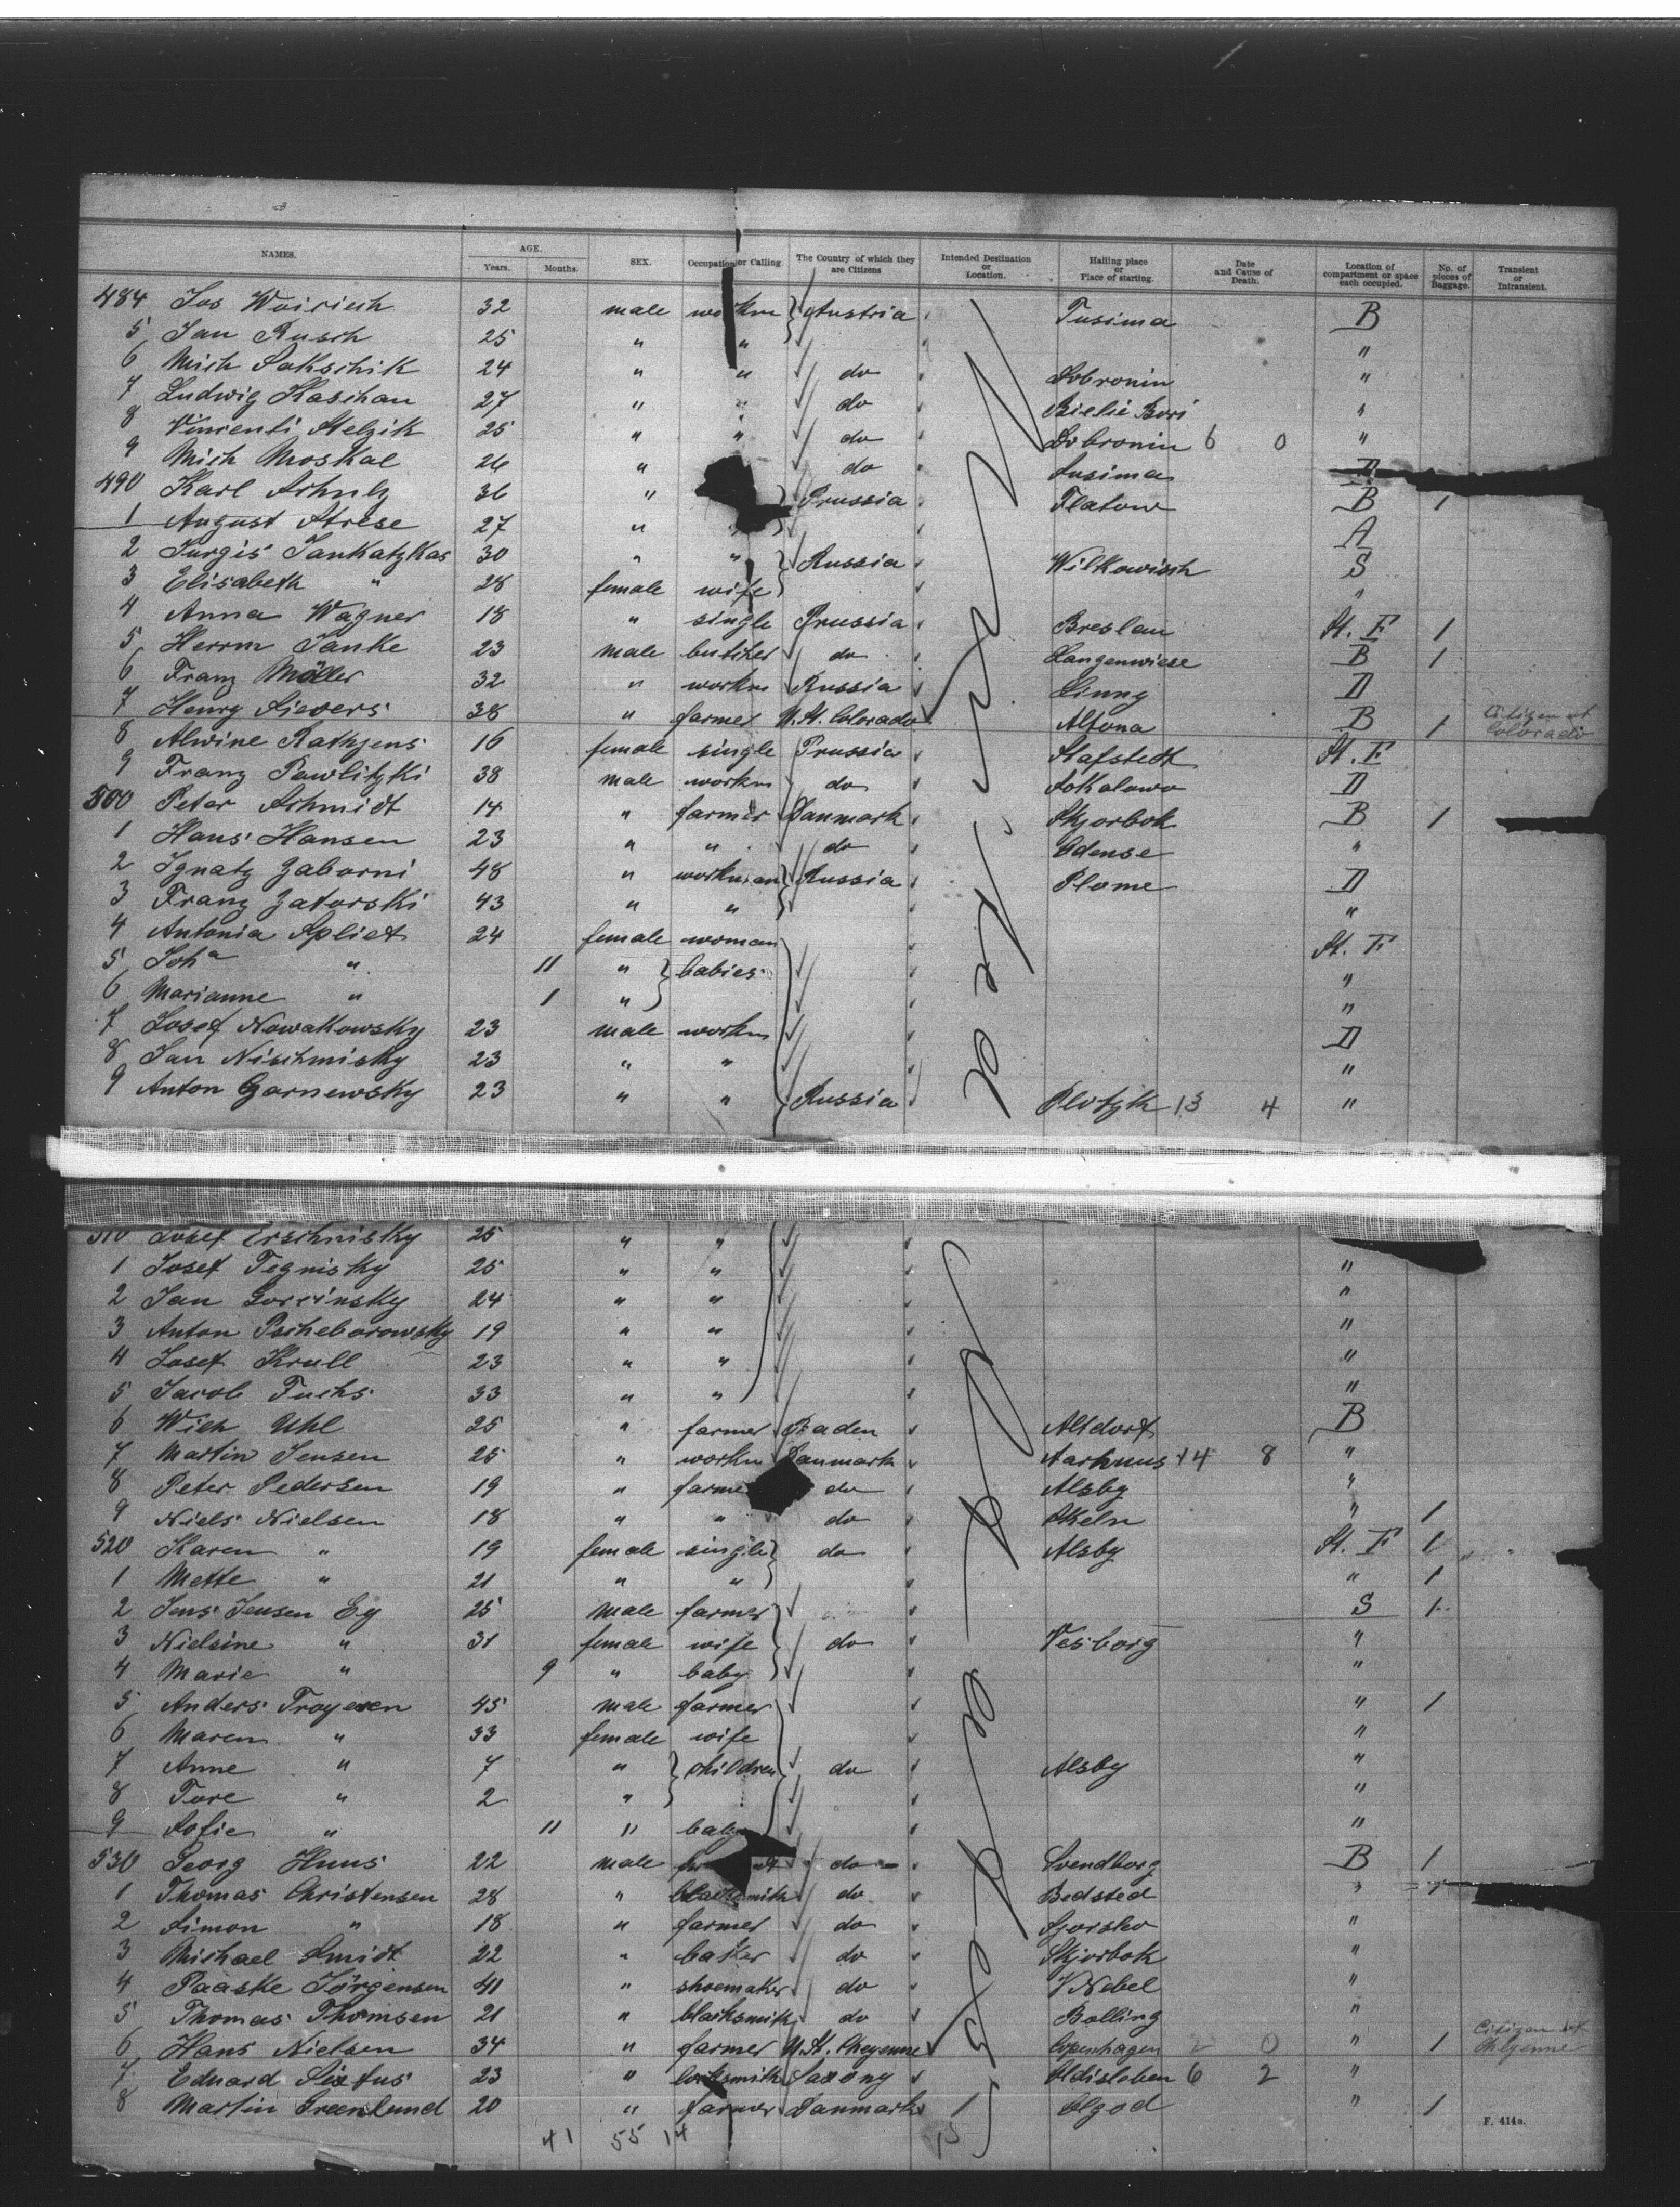 NAMES. AGE. Years. Months. SEX. Occupation or Calling. The Country of which they are Citizens Intended Destination or Location. Hailing place or Place of starting. Date and Cause of Death. Location of compartment or space each occupied. No. of pieces of Baggage. Transient or Intransient.
484 Jos 32 male Austria Tusima B
5 Jan Rusch 25 " " "
6 Mich Sakschik 24 " " do Dobronin "
7 Ludwig Kaschan 27 " " do Bielie Bori "
8 Vincenti Stelzik 25 " " do Dobronin 6 0 "
9 Mich Moskal 26 " do Tusima
490 Karl Schulz 36 " Prussia Flatow B 1
1 August Strese 27 " A
2 Jurgis Jankatzkas 30 " " Russia Wilkowisch S
3 Elisabeth " 28 female wife "
4 Anna Wagner 18 " single Prussia Breslau St. F 1
5 Herrm Janke 23 male butcher do Langenwiese B 1
6 Franz Möller 32 " workm Russia D
7 Henry Sievers 38 " farmer U. St. Colorado Altona B 1 Citizen of Colorado
8 Alwine Rathjens 16 female single Prussia Stafstedt St. F
9 Franz Pawlitzki 38 male workm do Sokolowo D
500 Peter Schmidt 14 " farmer Danmark Skjorbok B 1
1 Hans Hansen 23 " " do Odense "
2 Ignatz Zaborni 48 " workman Russia Plome D
3 Franz Zatorski 43 " " "
4 Antonia Spliet 24 female woman St. F
5 Joh<sup>a</sup> " 11 " babies "
6 Marianne " 1 " "
7 Josef Nowakowsky 23 male workm D
8 Jan Nischmisky 23 " " "
9 Anton Garnewsky 23 " " Russia Plotzk 13 4 "
510 Josef Erschnisky 25 " "
1 Josef Tegnisky 25 " " "
2 Jan Gorsinsky 24 " " "
3 Anton Pscheborowsky 19 " " "
4 Josef Krull 23 " " "
5 Jacob Fuchs 33 " " "
6 Wilh Uhl 25 " farmer Baden Altdorf B
7 Martin Jensen 25 " workm Danmark Aarhuus 14 8 "
8 Peter Pedersen 19 " farmer do Alsby "
9 Niels Nielsen 18 " " do " 1
520 Karen " 19 female single do Alsby St. F 1
1 Mette " 21 " " " 1
2 Jens Jensen Ey 25 male farmer S 1
3 Nielsine " 31 female wife do Vesborg "
4 Marie " 9 " baby "
5 Anders Troyesen 45 male farmer " 1
6 Maren " 33 female wife "
7 Anne " 7 " children do Alsby "
8 Tore " 2 " "
9 Sofie " 11 " baby "
530 Georg Huus 22 male do Svendborg B 1
1 Thomas Christensen 28 " blacksmith do Bedsted " 1
2 Simon " 18 " farmer do "
3 Michael Smidt 22 " baker do Skjorbok "
4 Paaske Jörgensen 41 " shoemaker do V Nebel "
5 Thomas Thomsen 21 " blacksmith do Bolling "
6 Hans Nielsen 34 " farmer U. St. Cheyenne Copenhagen 2 0 " 1 Citizen of Cheyenne
7 Eduard Sixtus 23 " locksmith Saxony Oldisleben 6 2 "
8 Martin Greenlund 20 " farmer Danmark Olgod " 1
41 55 14 15
F. 414a.